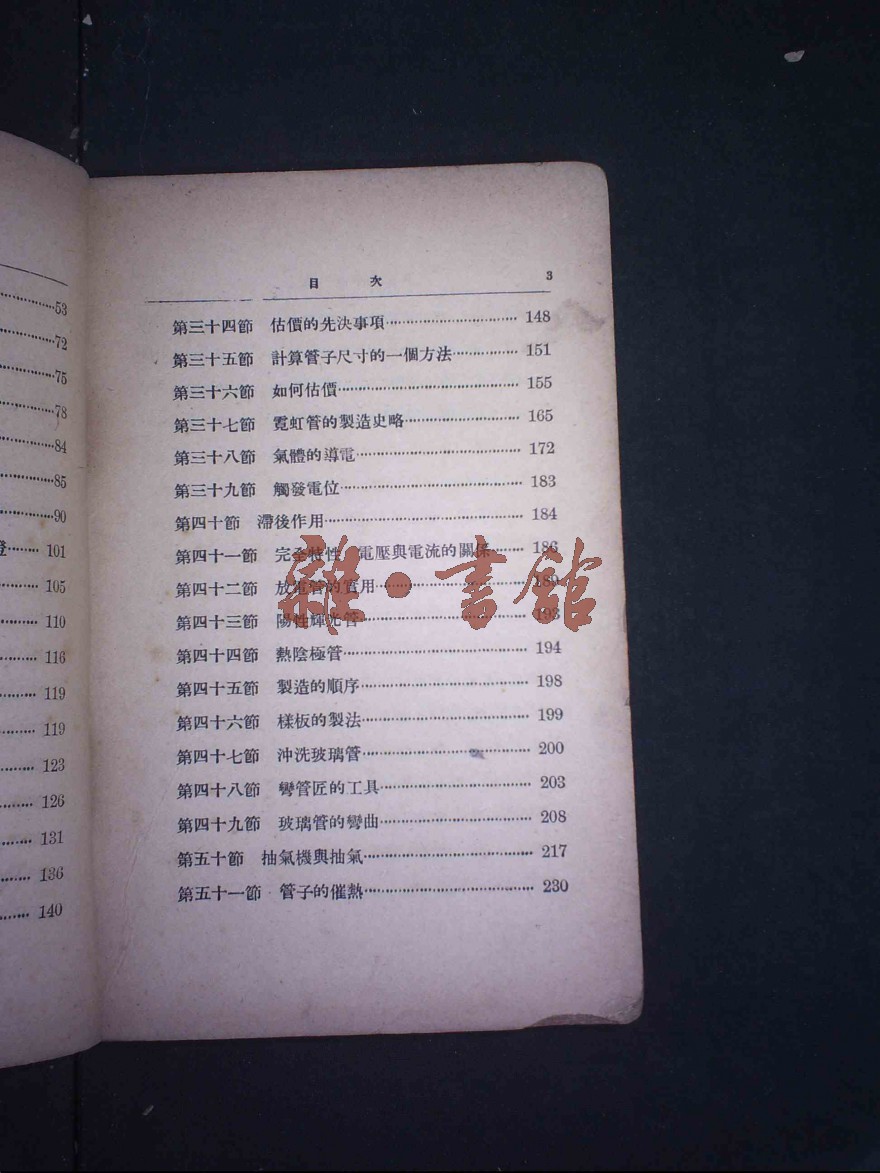 53
72
75
78
84
85
90
101
105
110
116
119
119
123
126
131
136
140
目 次 3
第三十四節 估價的先決事項 148
第三十五節 計算管子尺寸的一個方法 151
第三十六節 如何估價 155
第三十七節 霓虹管的製造史略 165
第三十八節 氣體的導電 172
第三十九節 觸發電位 183
第四十節 滯後作用 184
第四十一節 完全特性 電壓與電流的關係 186
第四十二節 放電管的實用 189
第四十三節 陽性輝光管 193
第四十四節 熱陰極管 194
第四十五節 製造的順序 198
第四十六節 樣板的製法 199
第四十七節 沖洗玻璃管 200
第四十八節 彎管匠的工具 203
第四十九節 玻璃管的彎曲 208
第五十節 抽氣機與抽氣 217
第五十一節 管子的催熱 230
雜·書館